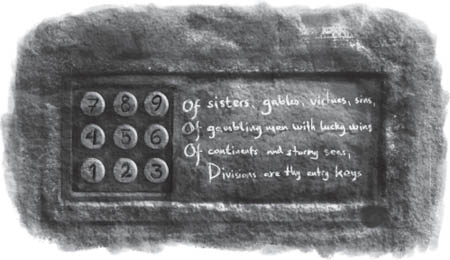 7 8 9
4 5 6
1 2 3
Of sisters, gables, virtues, sins,
Of gambling men with lucky wins
Of continents and stormy seas,
Divisions are thy entry keys